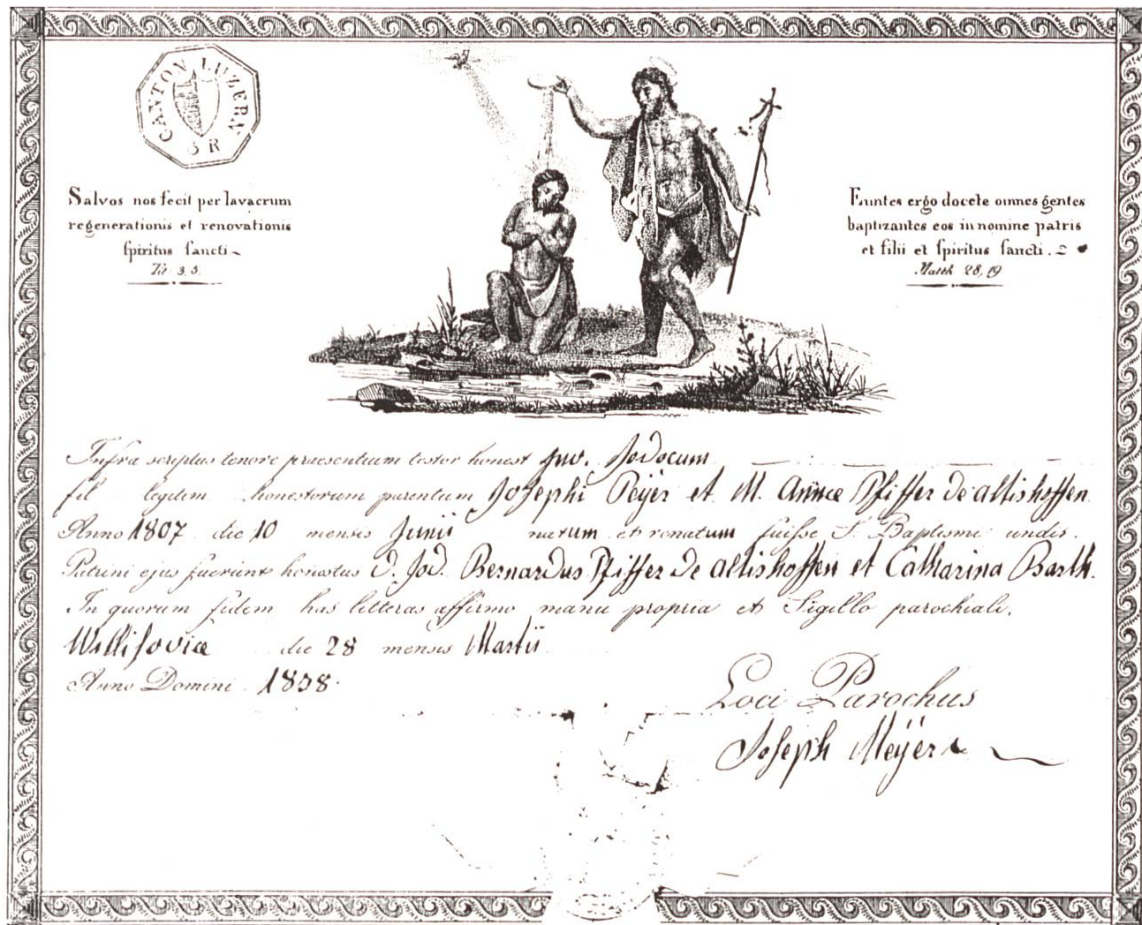 CANTON LUZERN
5 R
Salvos nos fecit per lavacrum
regenerationis et renovationis
spiritus sancti
Tit 3, 5.
Euntes ergo docete omnes gentes
baptizantes eos in nomine patris
et filii et spiritus sancti.
Matth 28, 19
Infra scriptus tenore praesentium testor honest juv. Jodocum
fil legitim honestorum parentum Josephi Peÿer et M. Annæ Pfiffer de altishoffen
Anno 1807 die 10 mensis Junii natum et renatum fuisse S. Baptismi undis.
Patrini ejus fuerunt honestus D. Jod. Bernardus Pfiffer de altishoffen et Catharina Barth.
In quorum fidem has litteras affirmo manu propria et Sigillo parochiali.
Willisoviæ die 28 mensis Martii
Anno Domini 1838.
Loci Parochus
Joseph Meÿer